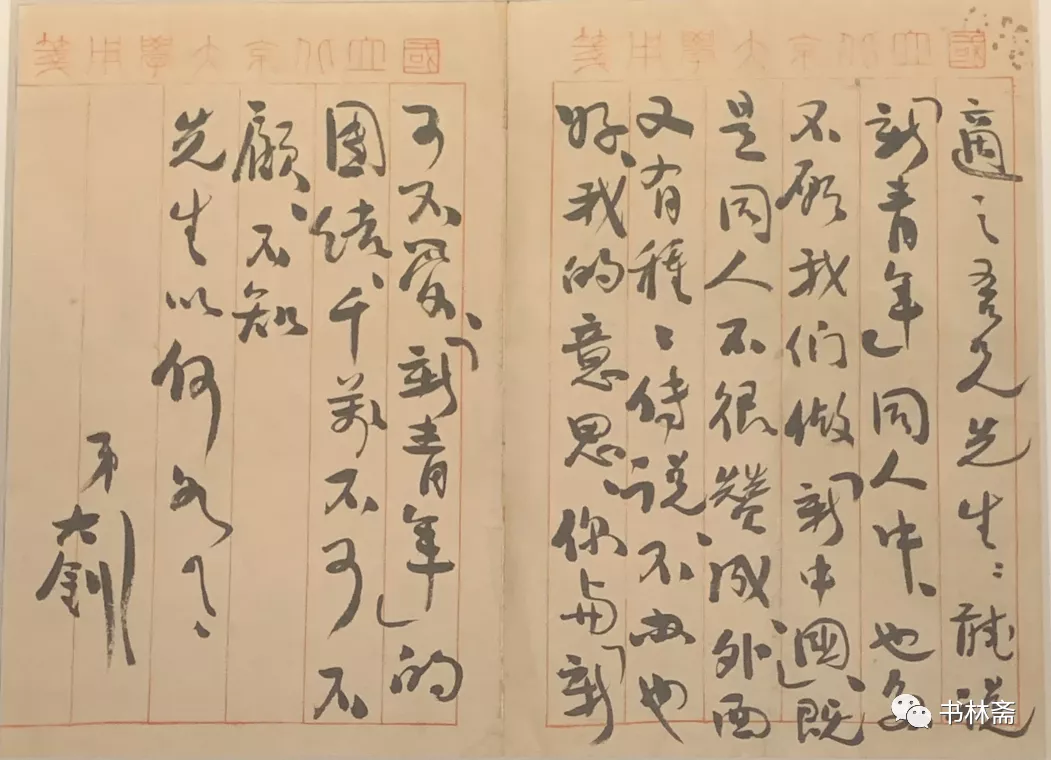 國立北京大學用箋
適之吾兄先生：聽说
「新青年」同人中、也多
不願我们做「新中國」、既
是同人不很贊成外面
又有種〻傳说、不办也
好、我的意思、你与「新
國立北京大學用箋
可不愛、「新青年」的
團结、千萬不可不
顧、不知
先生以何如
弟
大釗
书林斋